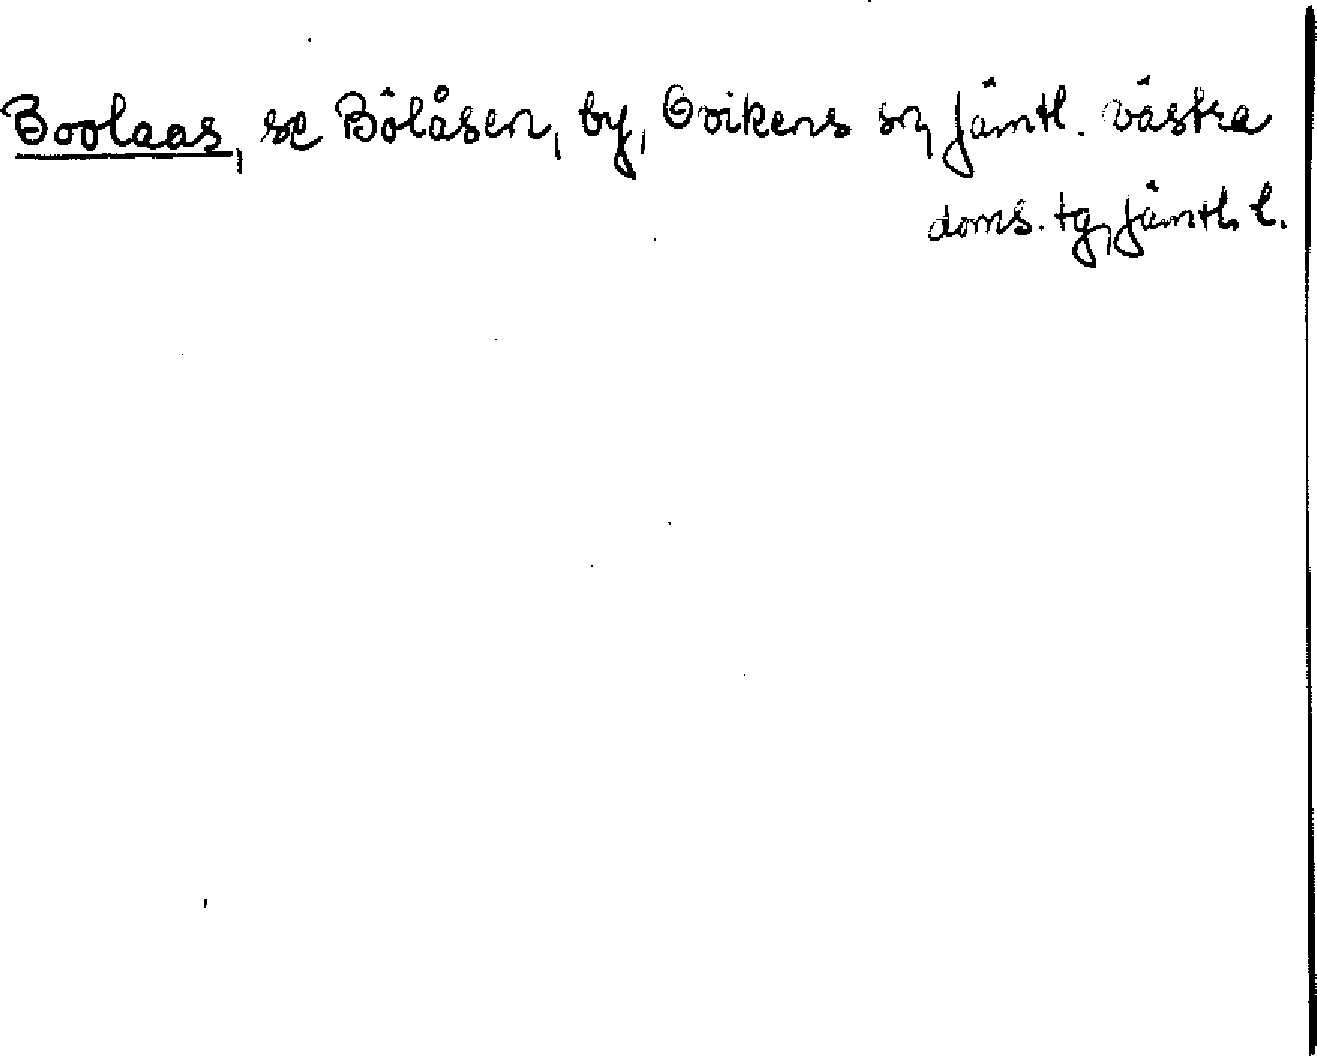 Boolaas, se Bölåsen, by, Ovikens sn, Jämtl. västra
doms. tg, Jämtl. l.